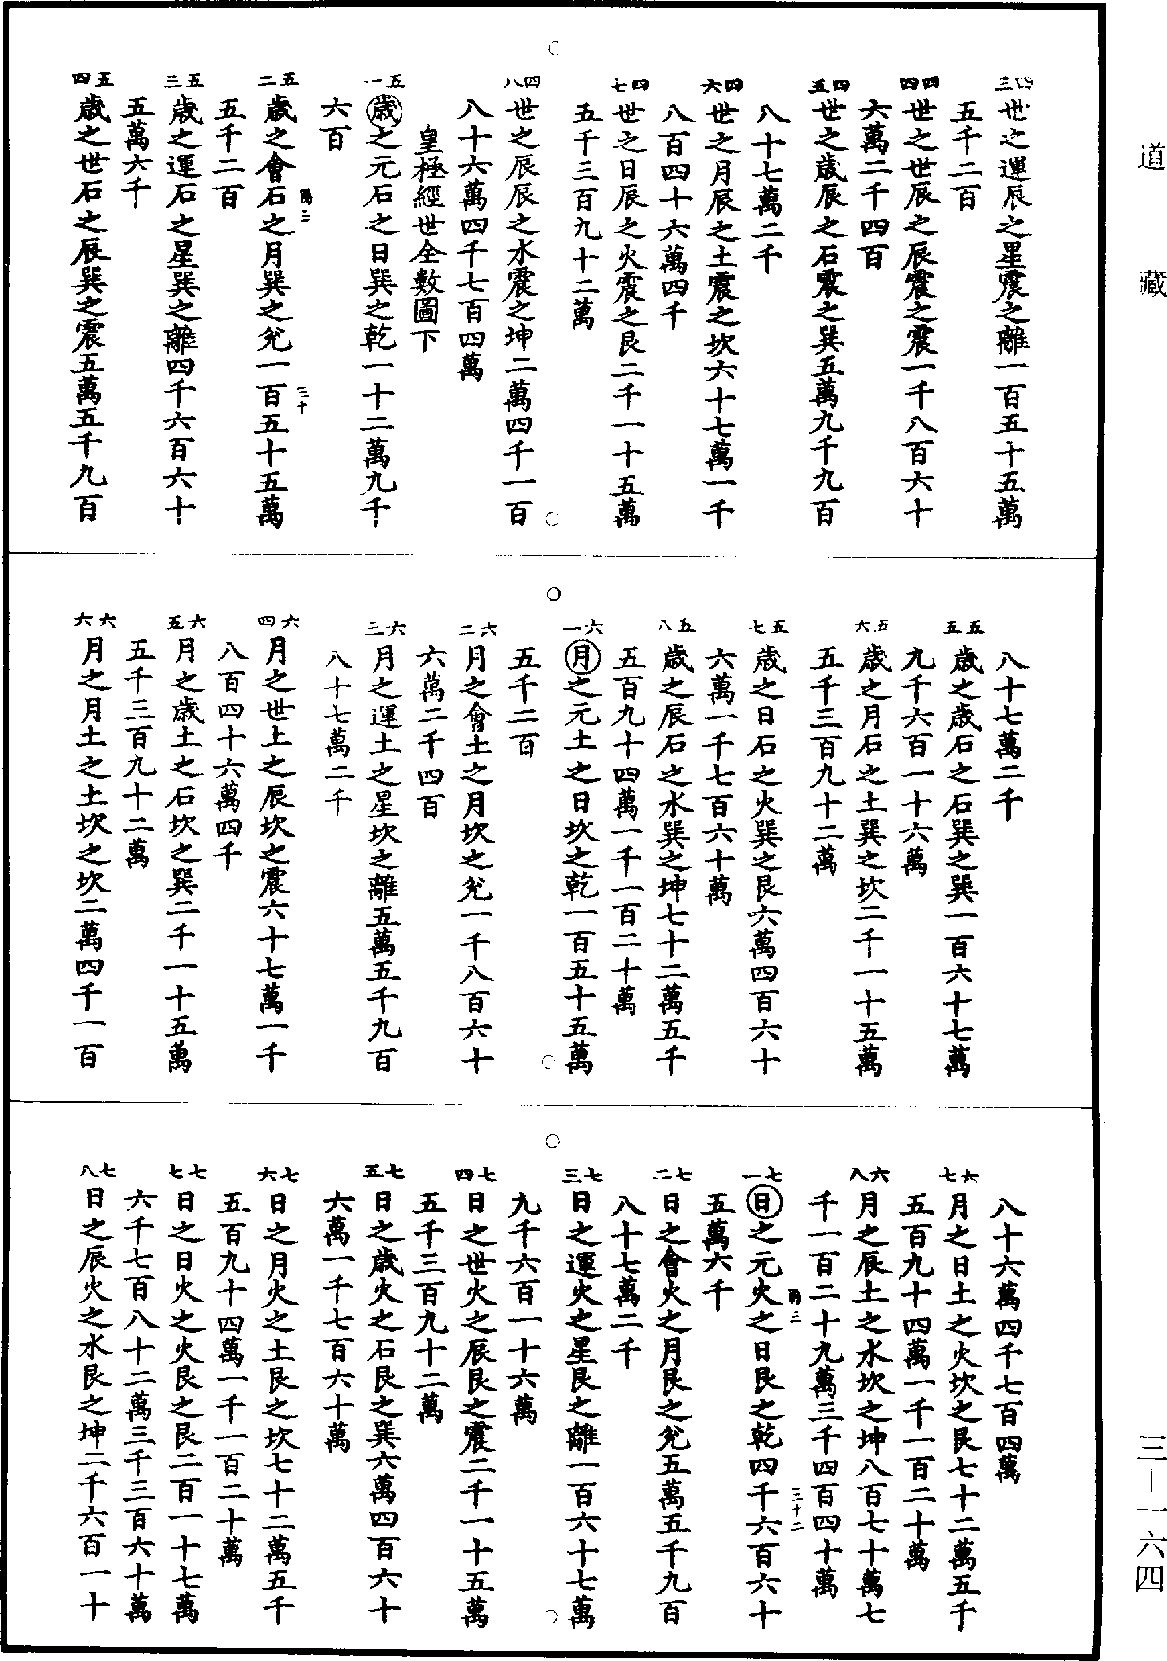 道藏
三四
世之運辰之星震之離一百五十五萬
五千二百
四四
世之世辰之辰震之震一千八百六十
六萬二千四百
五四
世之歲辰之石震之巽五萬九千九百
八十七萬二千
六四
世之月辰之土震之坎六十七萬一千
八百四十六萬四千
七四
世之日辰之火震之艮二千一十五萬
五千三百九十二萬
八四
世之辰辰之水震之坤二萬四千一百
八十六萬四千七百四萬
皇極經世全數圖下
一五
歲之元石之日巽之乾一十二萬九千
六百
二五
歲之會石之月巽之兊一百五十五萬
五千二百
三五
歲之運石之星巽之離四千六百六十
五萬六千
四五
歲之世石之辰巽之震五萬五千九百
八十七萬二千
五五
歲之歲石之石巽之巽一百六十七萬
九千六百一十六萬
六五
歲之月石之土巽之坎二千一十五萬
五千三百九十二萬
七五
歲之日石之火巽之艮六萬四百六十
六萬一千七百六十萬
八五
歲之辰石之水巽之坤七十二萬五千
五百九十四萬一千一百二十萬
一六
月之元土之日坎之乾一百五十五萬
五千二百
二六
月之會土之月坎之兊一千八百六十
六萬二千四百
三六
月之運土之星坎之離五萬五千九百
八十七萬二千
四六
月之世土之辰坎之震六十七萬一千
八百四十六萬四千
五六
月之歲土之石坎之巽二千一十五萬
五千三百九十二萬
六六
月之月土之土坎之坎二萬四千一百
八十六萬四千七百四萬
七六
月之日土之火坎之艮七十二萬五千
五百九十四萬一千一百二十萬
八六
月之辰土之水坎之坤八百七十萬七
千一百二十九萬三千四百四十萬
一七
日之元火之日艮之乾四千六百六十
五萬六千
二七
日之會火之月艮之兊五萬五千九百
八十七萬二千
三七
日之運火之星艮之離一百六十七萬
九千六百一十六萬
四七
日之世火之辰艮之震二千一十五萬
五千三百九十二萬
五七
日之歲火之石艮之巽六萬四百六十
六萬一千七百六十萬
六七
日之月火之土艮之坎七十二萬五千
五百九十四萬一千一百二十萬
七七
日之日火之火艮之艮二百一十七萬
六千七百八十二萬三千三百六十萬
八七
日之辰火之水艮之坤二千六百一十
三－一六四